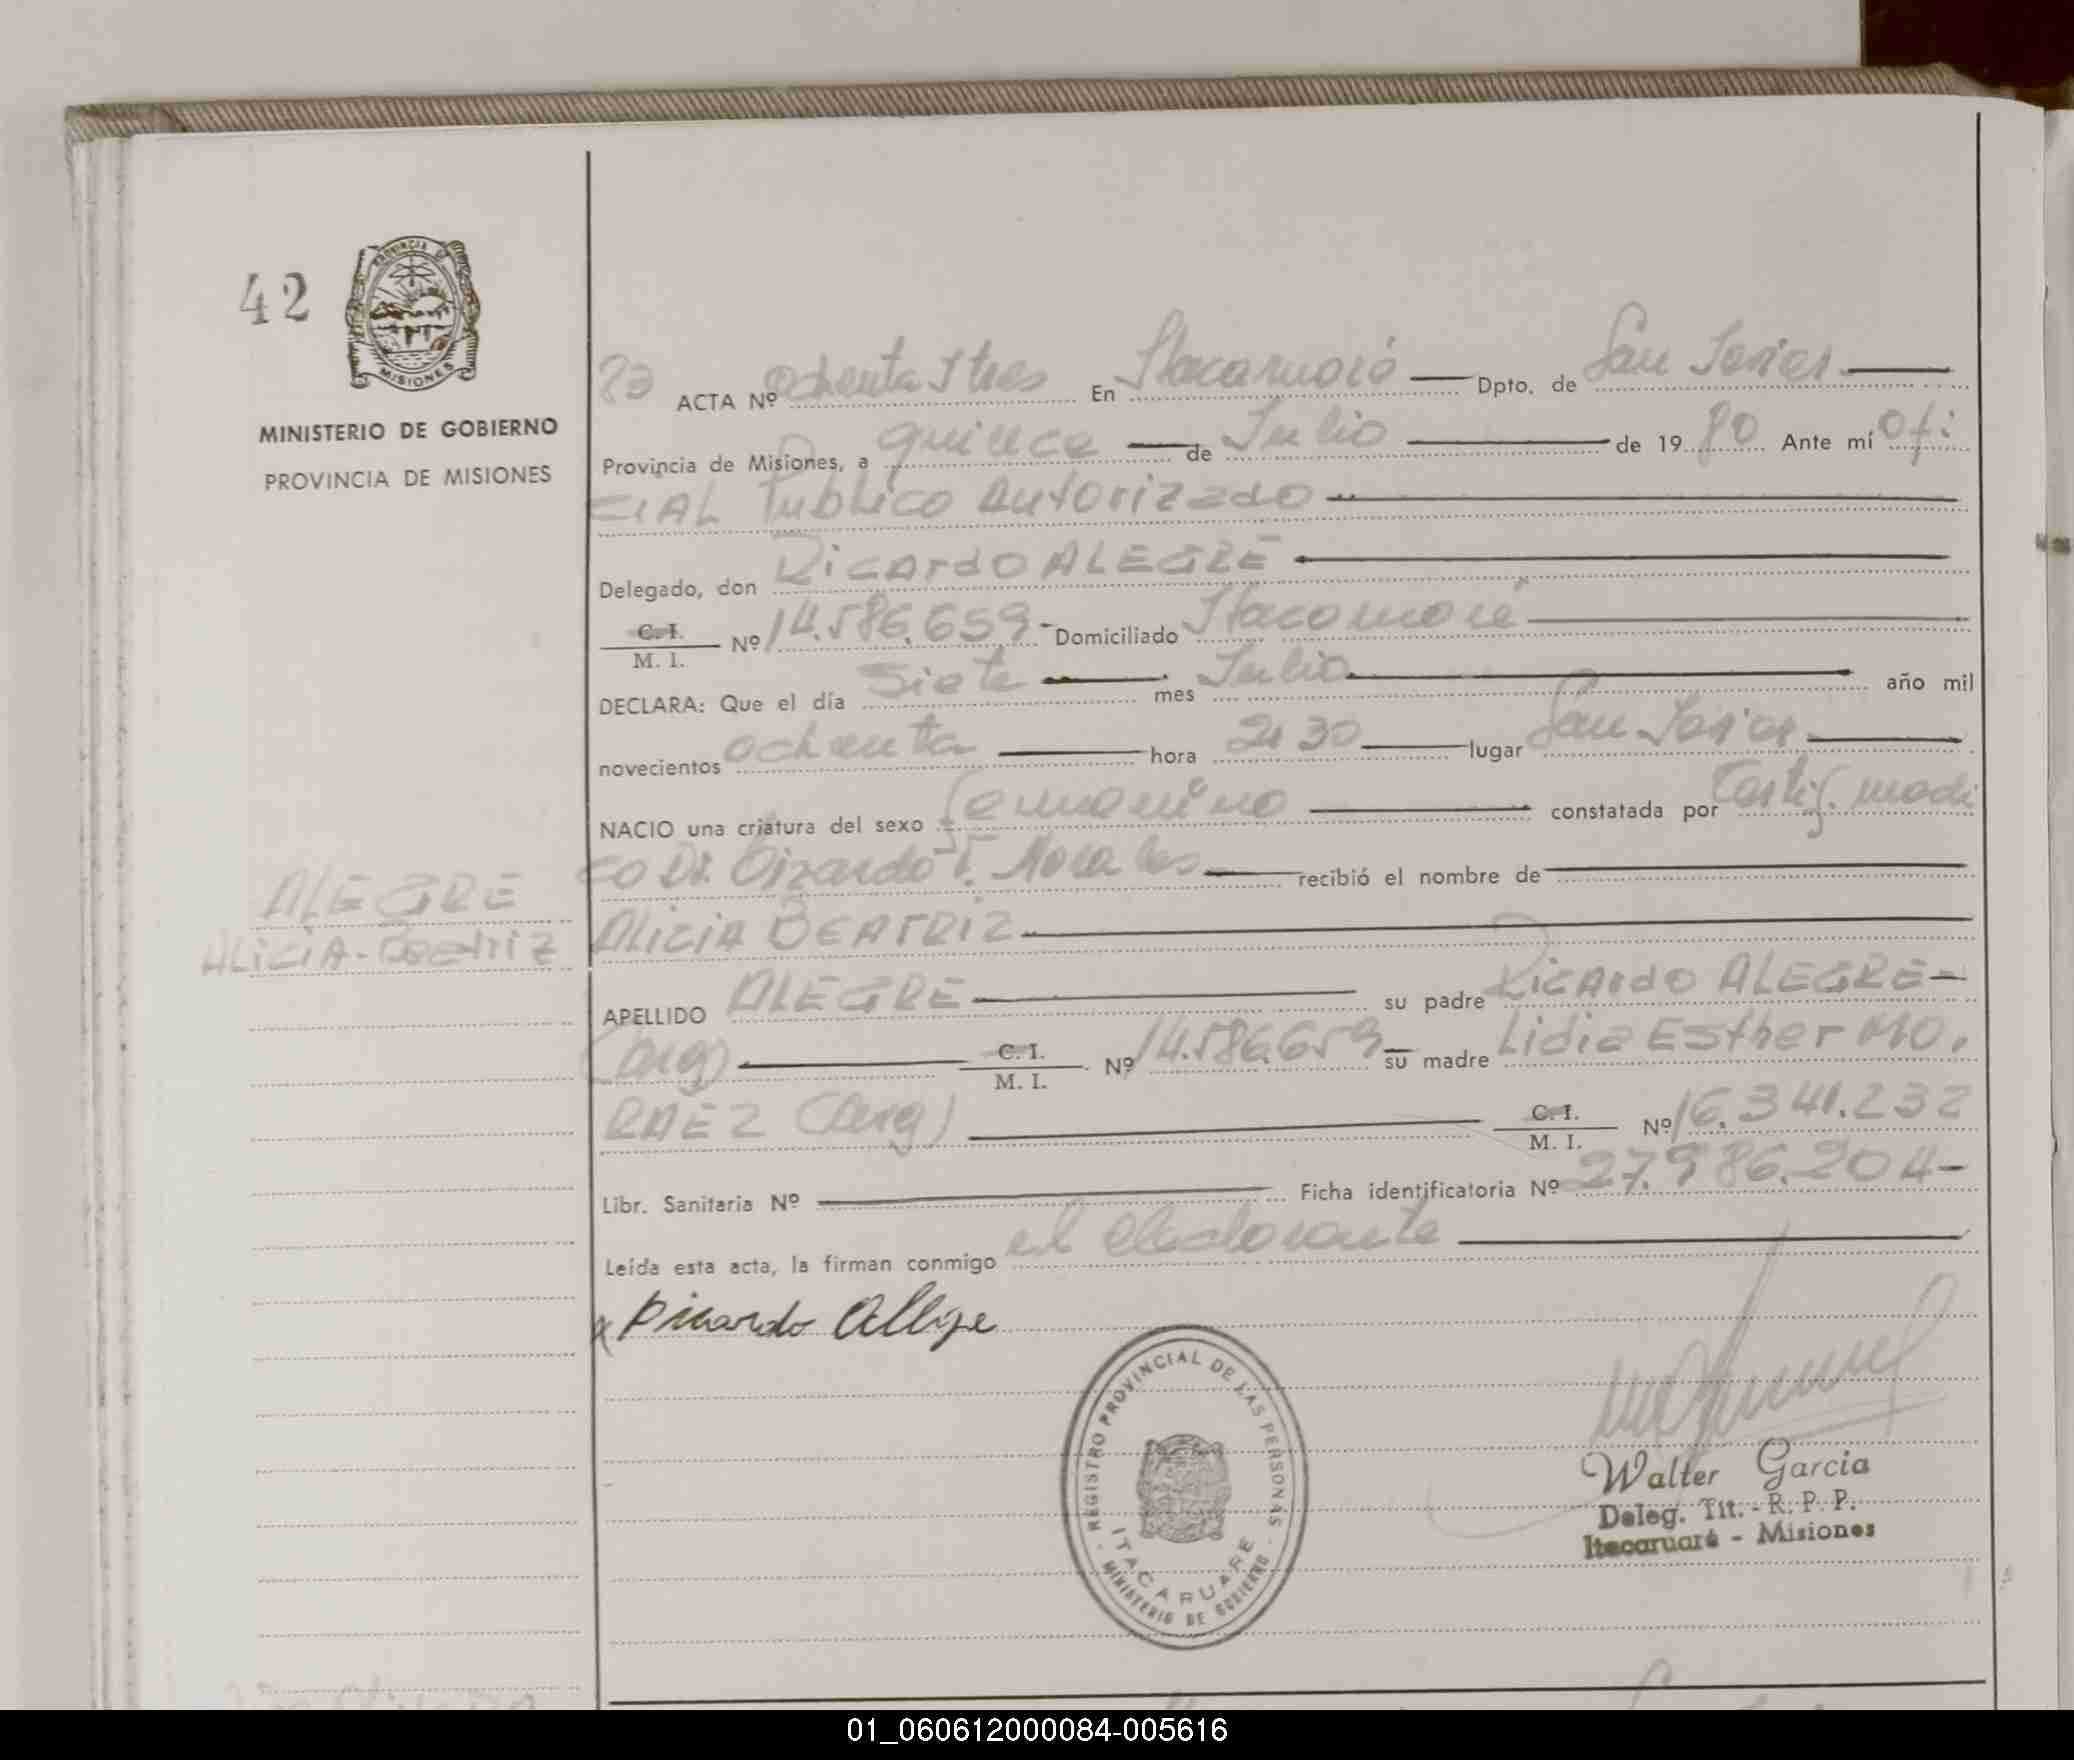 42
PROVINCIA DE
MISIONES
MINISTERIO DE GOBIERNO
PROVINCIA DE MISIONES
83 ACTA Nº ochenta y tres En Itacaruaré Dpto. de San Javier
Provincia de Misiones, a quince de Julio de 1980 Ante mí Ofi
CIAL Publico Autorizado
Delegado, don Ricardo ALEGRE
C. I. / M. I. Nº 14.586.659 - Domiciliado Itacaruaré
DECLARA: Que el día siete mes Julio año mil
novecientos ochenta hora 2130 lugar San Javier
NACIO una criatura del sexo femenino constatada por Certif. medi
co Dr. Morales recibió el nombre de
ALEGRE
ALICIA-Beatriz
ALICIA BEATRIZ
APELLIDO ALEGRE su padre Ricardo ALEGRE-
(arg) C. I. / M. I. Nº 14.586.659 su madre Lidia Esther MO.
RAEZ (arg) C. I. / M. I. Nº 16.341.232
Libr. Sanitaria Nº Ficha identificatoria Nº 27.986.204-
Leída esta acta, la firman conmigo el declarante
x Ricardo Allgre
REGISTRO PROVINCIAL DE LAS PERSONAS
ITACARUARE
MINISTERIO DE GOBIERNO
Walter Garcia
Deleg. Tit. - R. P. P.
Itacaruaré - Misiones
01_060612000084-005616